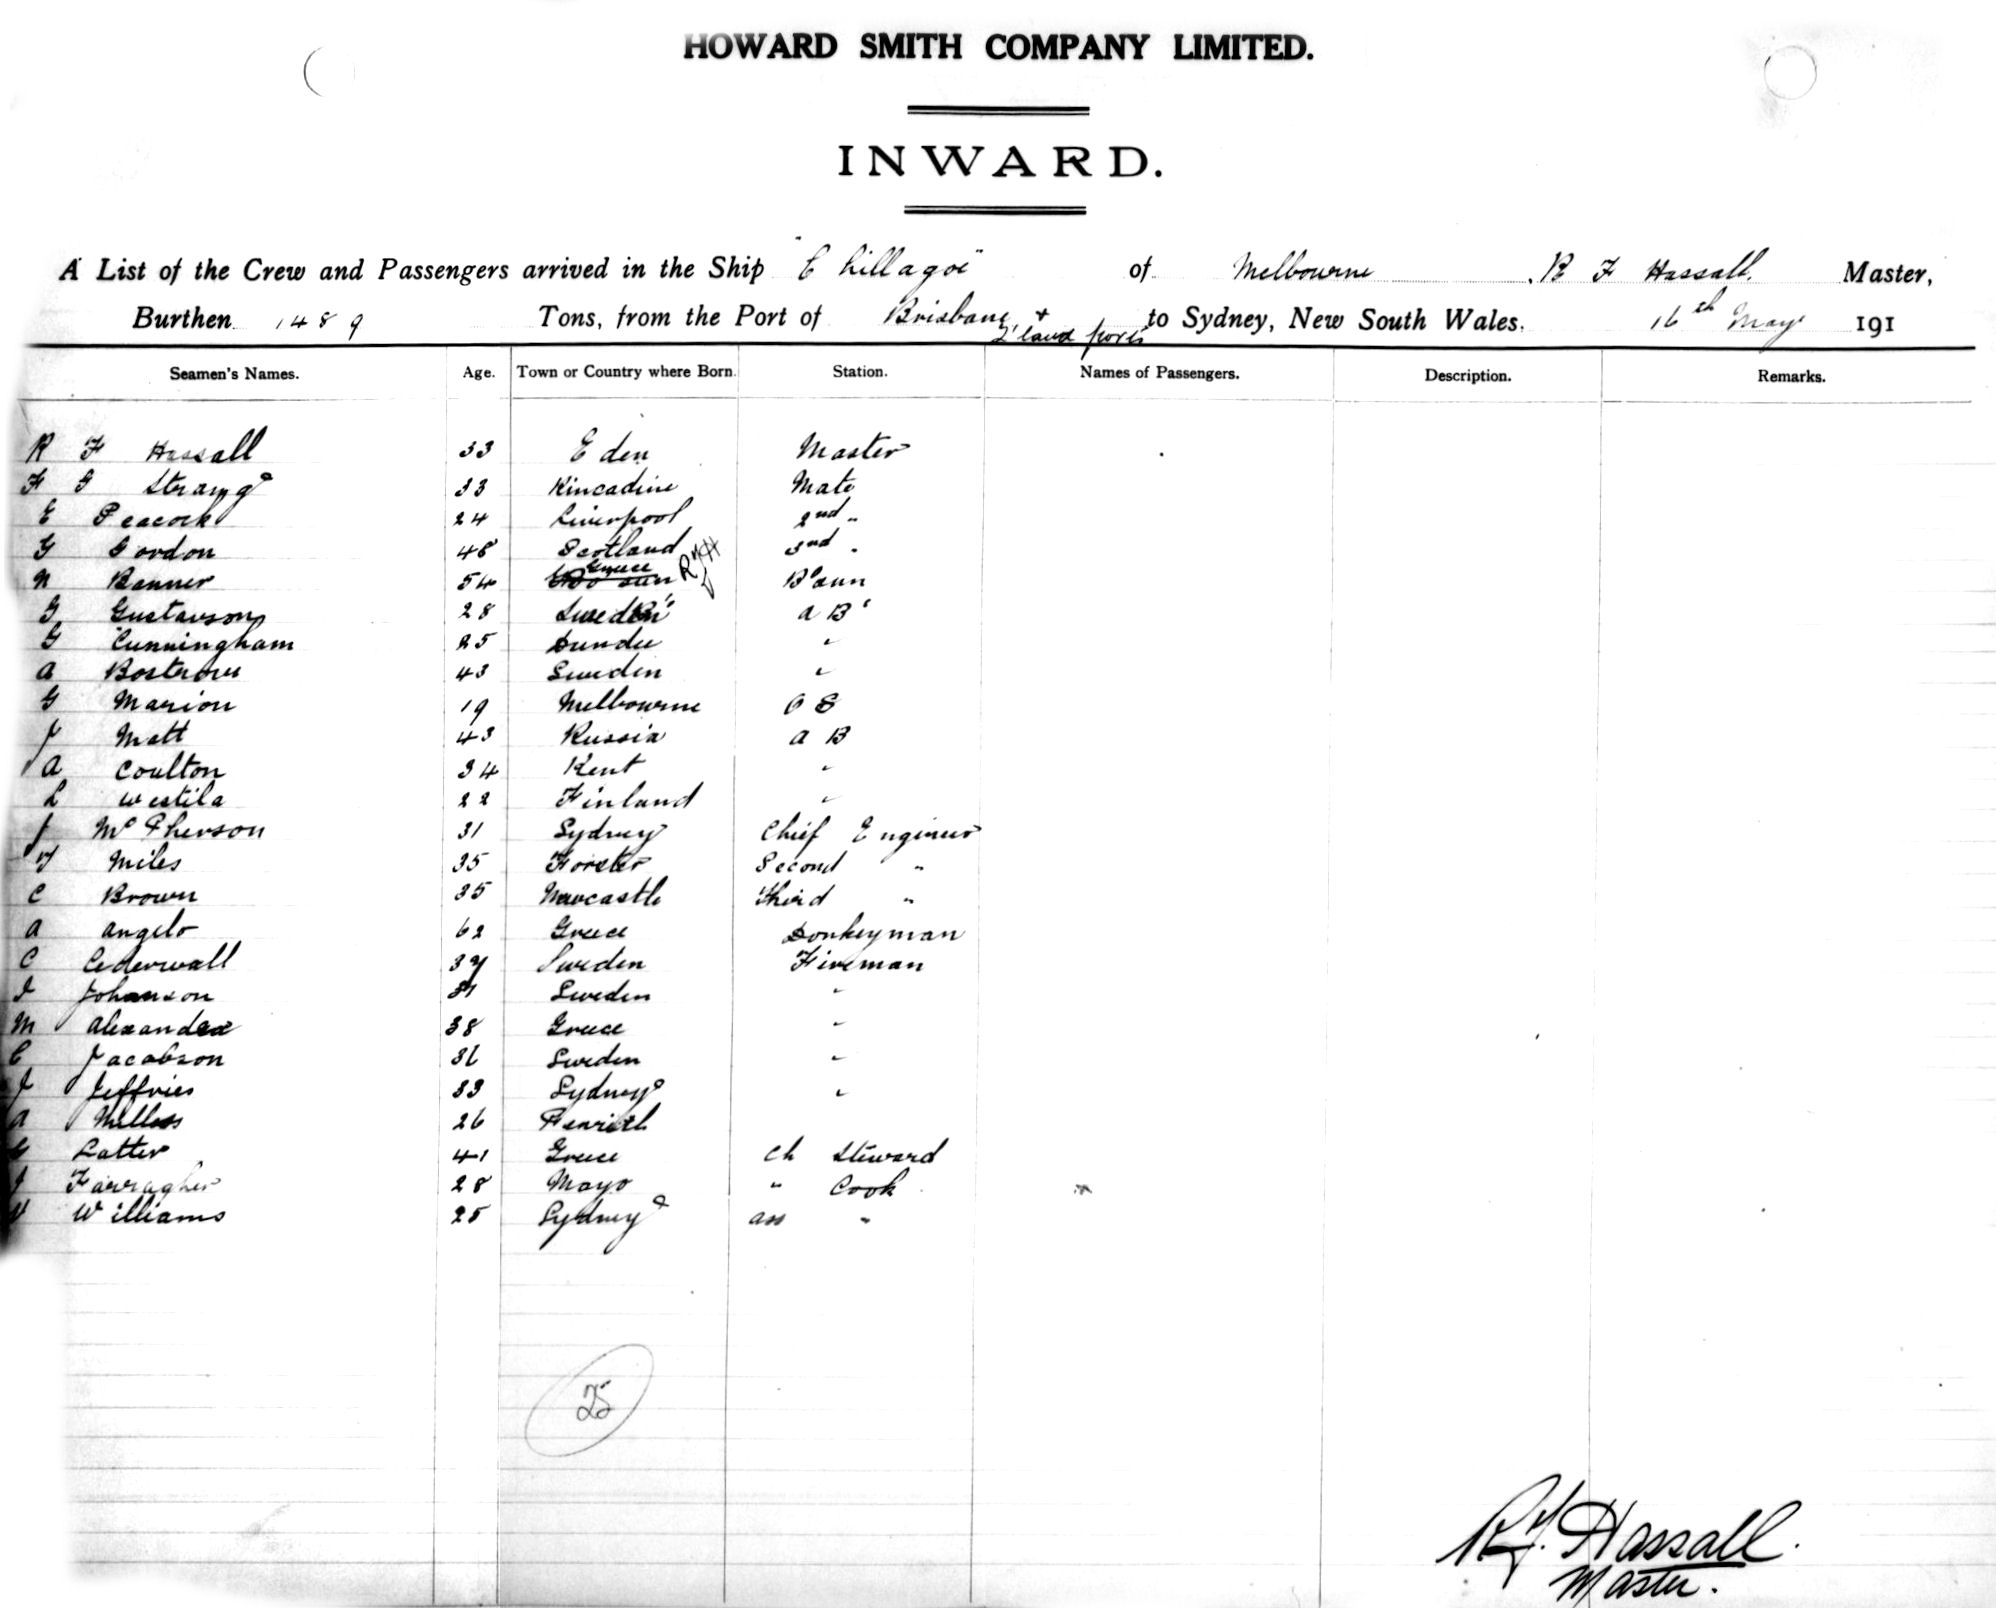 HOWARD SMITH COMPANY LIMITED.
INWARD.
A List of the Crew and Passengers arrived in the Ship "Chillagoe" of Melbourne, R F Hassall, Master,
Burthen 1489 Tons, from the Port of Brisbane + Q'land ports to Sydney, New South Wales. 16th May 191
Seamen's Names. Age. Town or Country where Born. Station. Names of Passengers. Description. Remarks.
R F Hassall 33 Eden Master
F G Strang 33 Kincadine Mate
E Peacock 24 Liverpool 2nd "
G Gordon 48 Scotland 3rd "
N Banner 54 Greece RFH B'sun
G Gustavson 28 Sweden A B
G Cunningham 25 Dundee "
A Bostrom 43 Sweden "
G Marion 19 Melbourne O S
J Matt 43 Russia A B
A Coulton 34 Kent "
L Westila 22 Finland "
J McPherson 31 Sydney Chief Engineer
Miles 35 Forster Second "
C Brown 35 Newcastle Third "
A Angelo 62 Greece Donkeyman
C Cederwall 37 Sweden Fireman
Johanson Sweden "
M Alexander 38 Greece "
C Jacobson 36 Sweden "
J Jeffries 33 Sydney "
A 26 Penrith
G Latter 41 Greece Ch Steward
J Farragher 28 Mayo " Cook
Williams 25 Sydney ass "
25
R.F. Hassall.
Master.